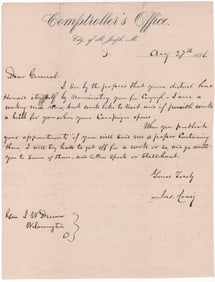 Comptroller's Office.
City of St. Joseph, Mo.
Aug 27th 1886
Dear General
I see by the papers that your district has
Honored itself by Nominating you for Congress. I am a
working man now, but would like to
a little for you when your Campaign opens.
When you publish
your appointments if you will send me a paper containing
them, I will try hard to get off for a week or so and go with
you to some of them and either Speak or
Yours Truly
Jas.
Gen. J. W. Denver
Wilmington
O